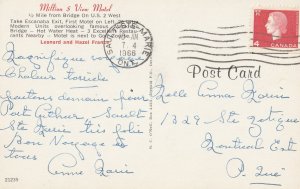 Million $ View Motel
½ Mile from Bridge On U.S. 2 West
Take Escanaba Exit, First Motel on Left, 28
Modern Units overlooking famous
Bridge — Hot Water Heat — 3 Excellent Restau-
rants Nearby — Motel is next to Golf
Leonard and Hazel
SAULT STE. MARIE
AM
7 4
1966
ONT.
4 CANADA
Post Card
Magnifique voyage
Chaleur torride
partons demain pour
Port Arthur. Sault
Ste Marie très jolie
Bon Voyage de
Anne Marie
Melle Anna Marie
1829 Ste
Montreal Est
P. Qué
21239